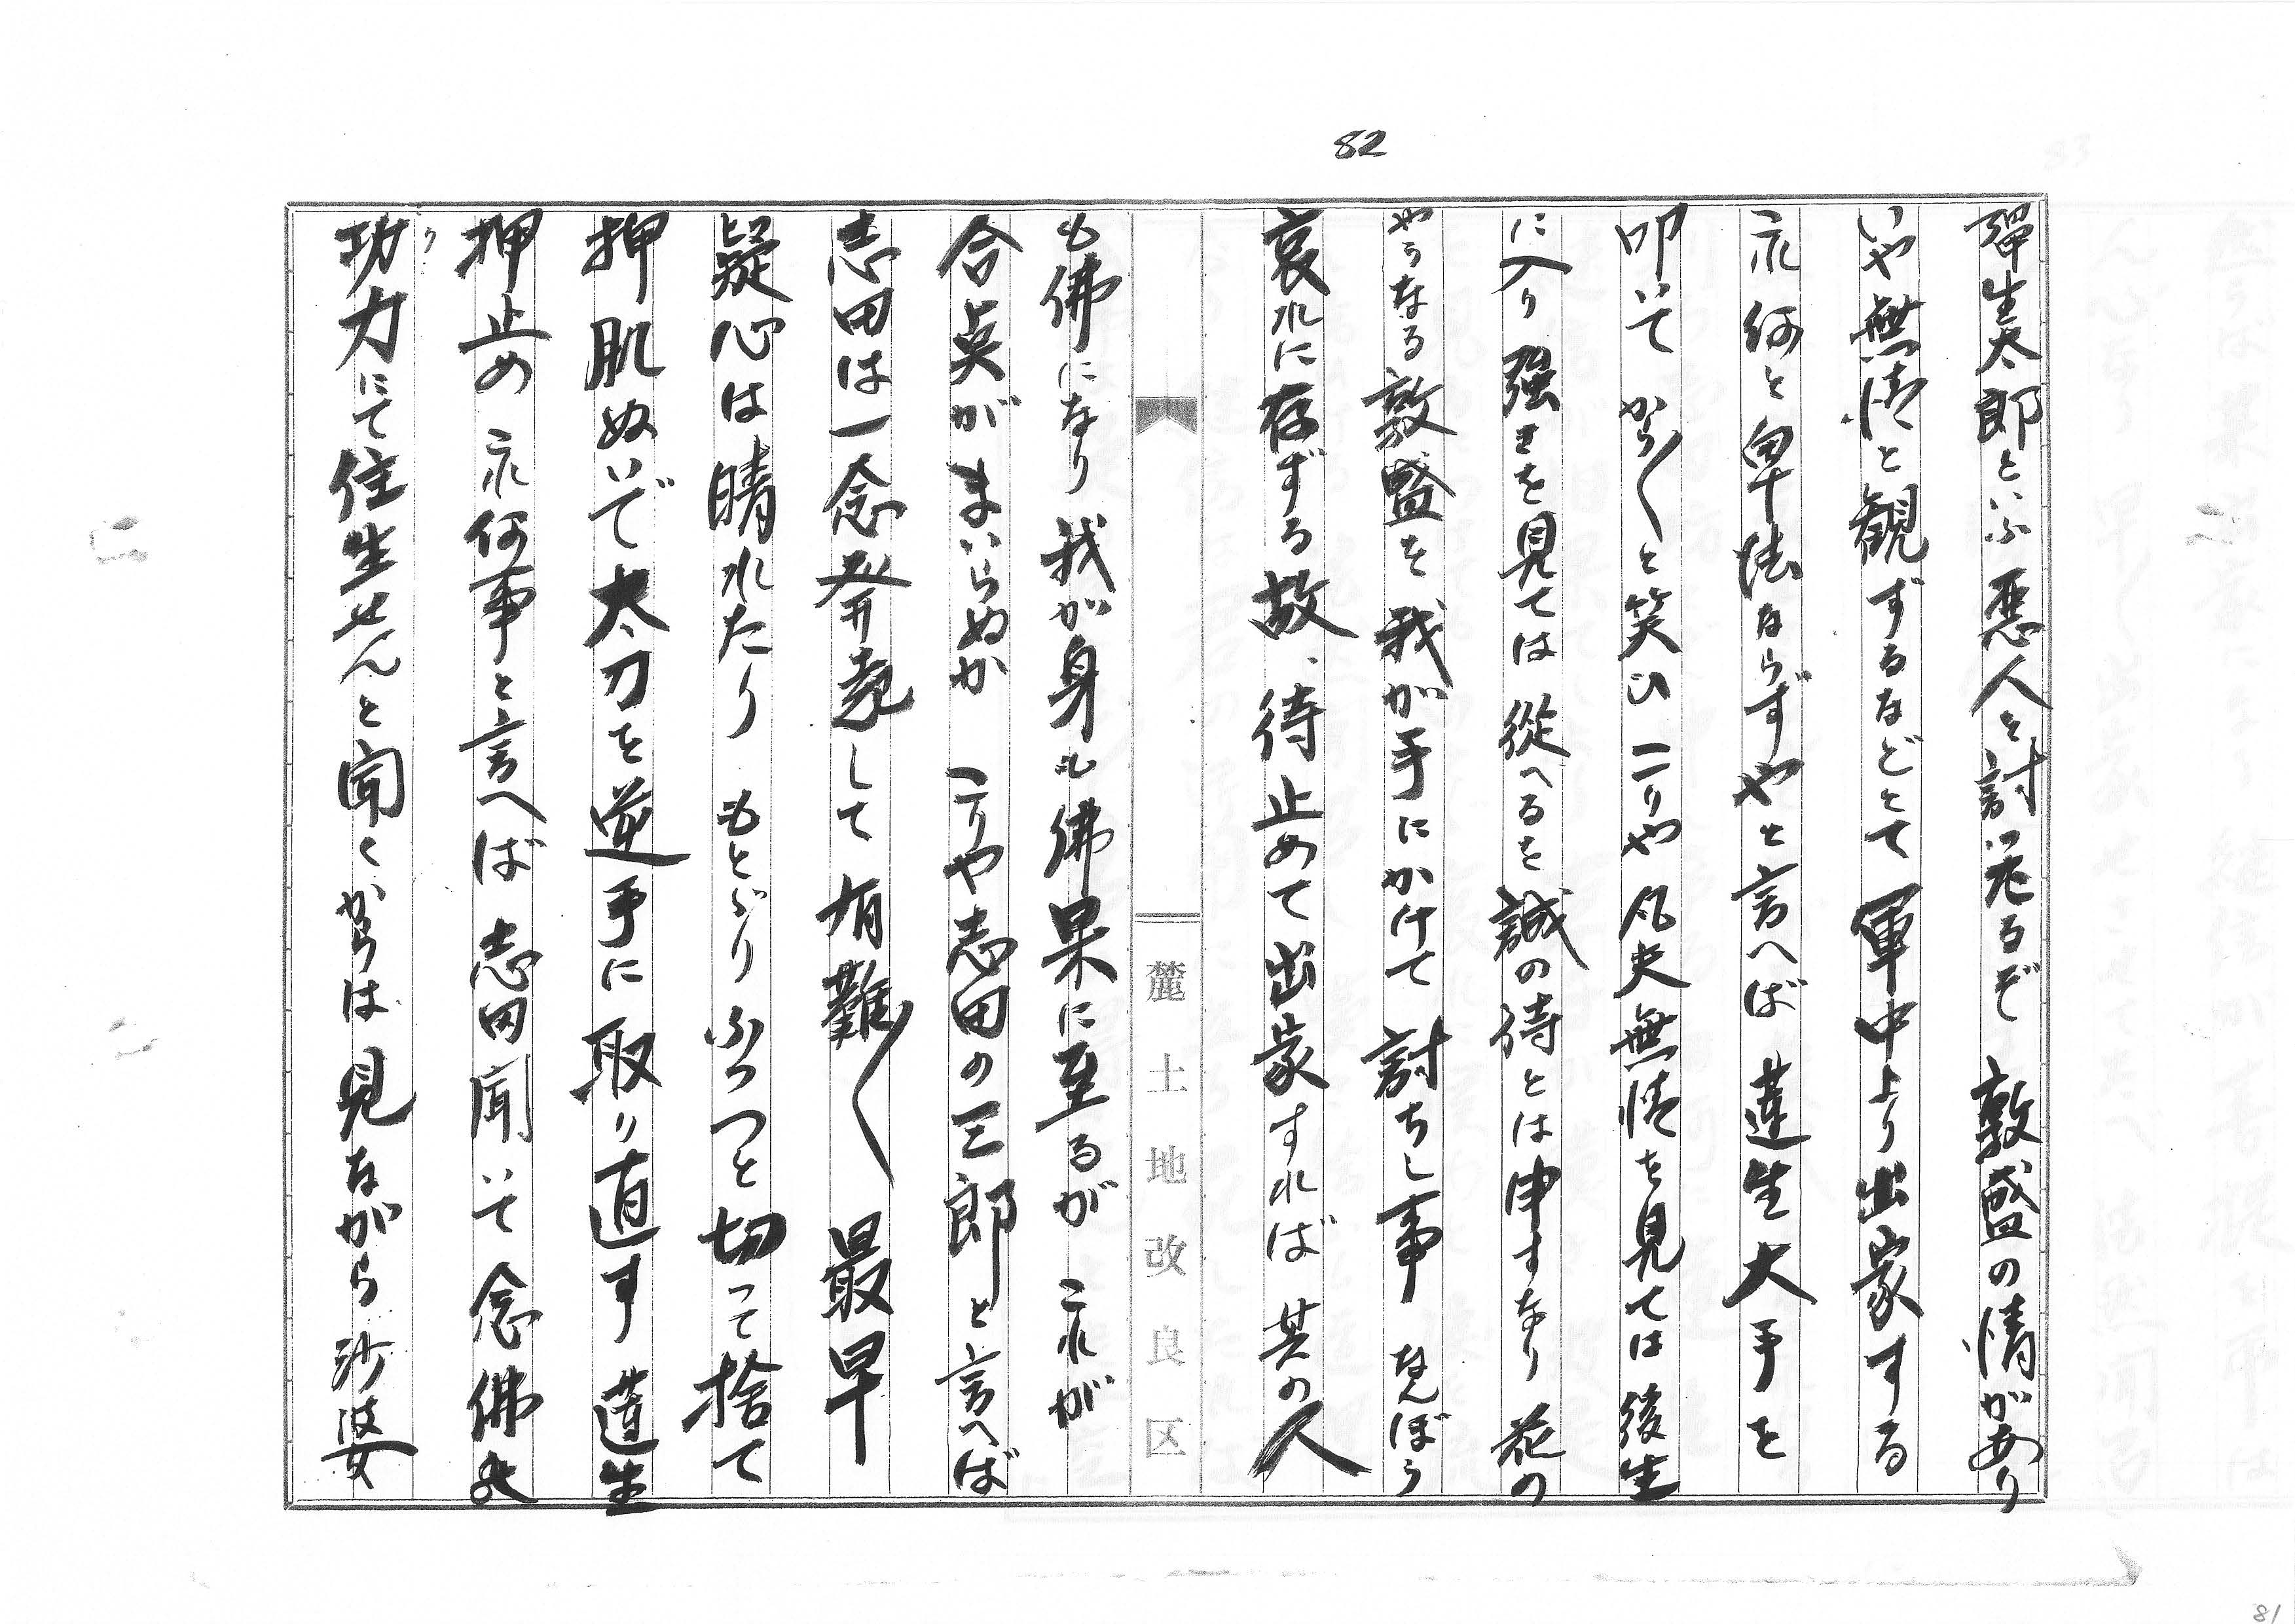 82
彈生太郎といふ悪人を討もるぞ 敦盛の情があり
いや無情と観ずるなどとて軍中より出家する
永何と卑怯ならずやと言へば 蓮生大手を
叩いてから〱と笑ひ こりや凡夫無情を見ては後生
に入り 強きを見ては 従へるを 誠の侍とは申すなり 花の
やうなる敦盛を我が手にかけて 討ちし事 なんぼう
哀れに存ずる故、待止めて出家すれば 其の人
麓土地改良区
も佛になり 我が身も佛果に至るが これが
合点がまいらぬか こりや志田の三郎と言へば
志田は一念発起して 有難〱 最早
疑心は晴れたり もとどりふつつと切つて捨て
押肌ぬいで太刀を逆手に取り直す 蓮生
押止め 永何事と言へば 志田聞いて 念佛の
り
功力にて往生せんと聞くからは 見ながら 沙婆
81